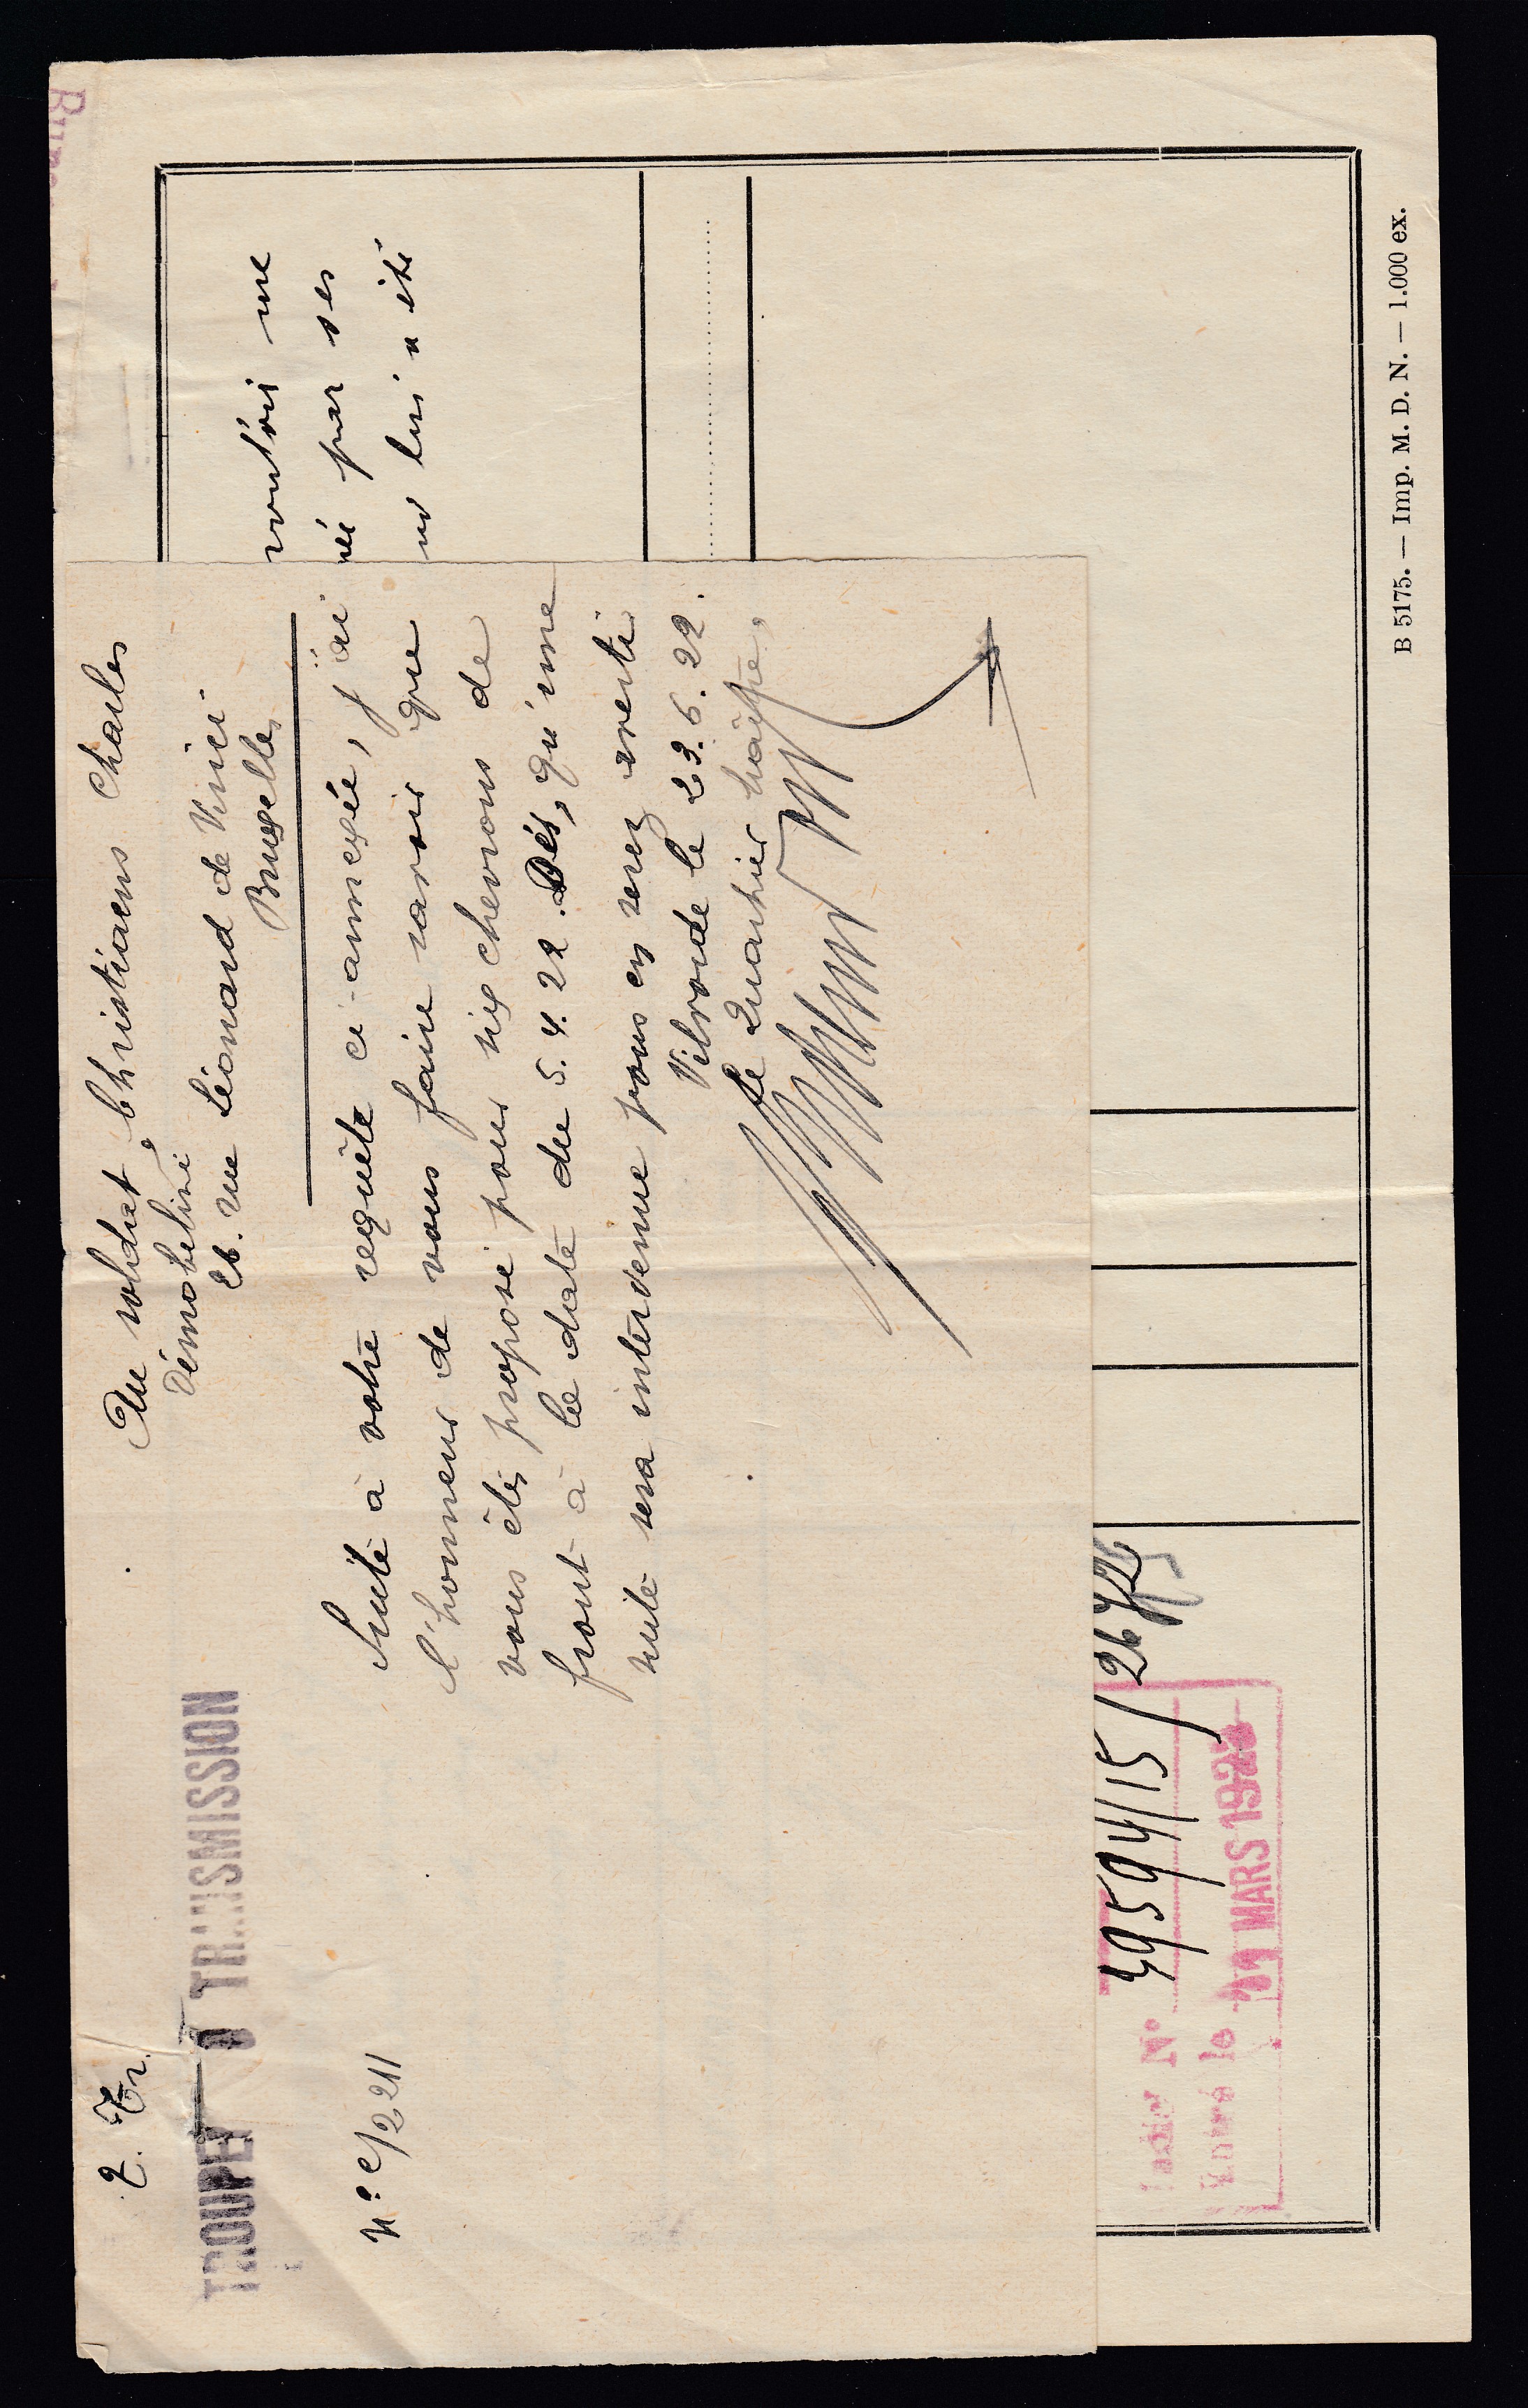 2. Tr.
TROUPES TRANSMISSION
N° C/2211
Au soldat Christiaens Charles
Démobilisé
26. rue Léonard de Vinci
Bruxelles
Suite à votre requête ci-annexée, j'ai
l'honneur de vous faire savoir que
vous êtes proposé pour six chevrons de
front à la date du 5.4.22. Dès, qu'une
suite sera intervenue vous en serez averti
Vilvorde le 23.6.22.
Le Quartier Maître,
vouloir me
née par ses
lui a été
N° 49594/15/26
Entré le MARS 192
B 5175. — Imp. M. D. N. — 1.000 ex.